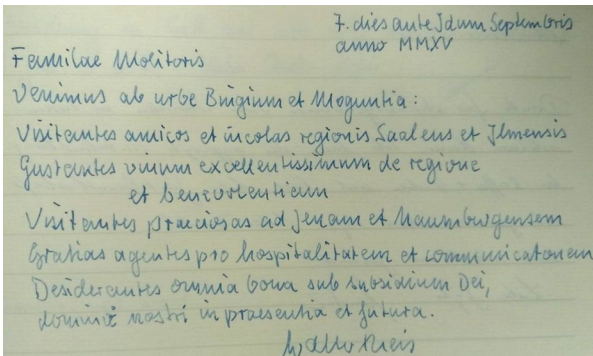 7. dies ante Idum Septembris
anno MMXV
Familae Molitoris
Venimus ab urbe Bingium et Moguntia:
Visitantes amicos et incolas regionis Saalens et Ilmensis
Gustantes vinum excellentissimum de regione
et benevolentiam
Visitantes praeciosas ad Jenam et Naumburgensem
Gratias agentes pro hospitalitatem et communicatonem
Desiderantes omnia bona sub subsidium Dei,
domini nostri in praesentia et futura.